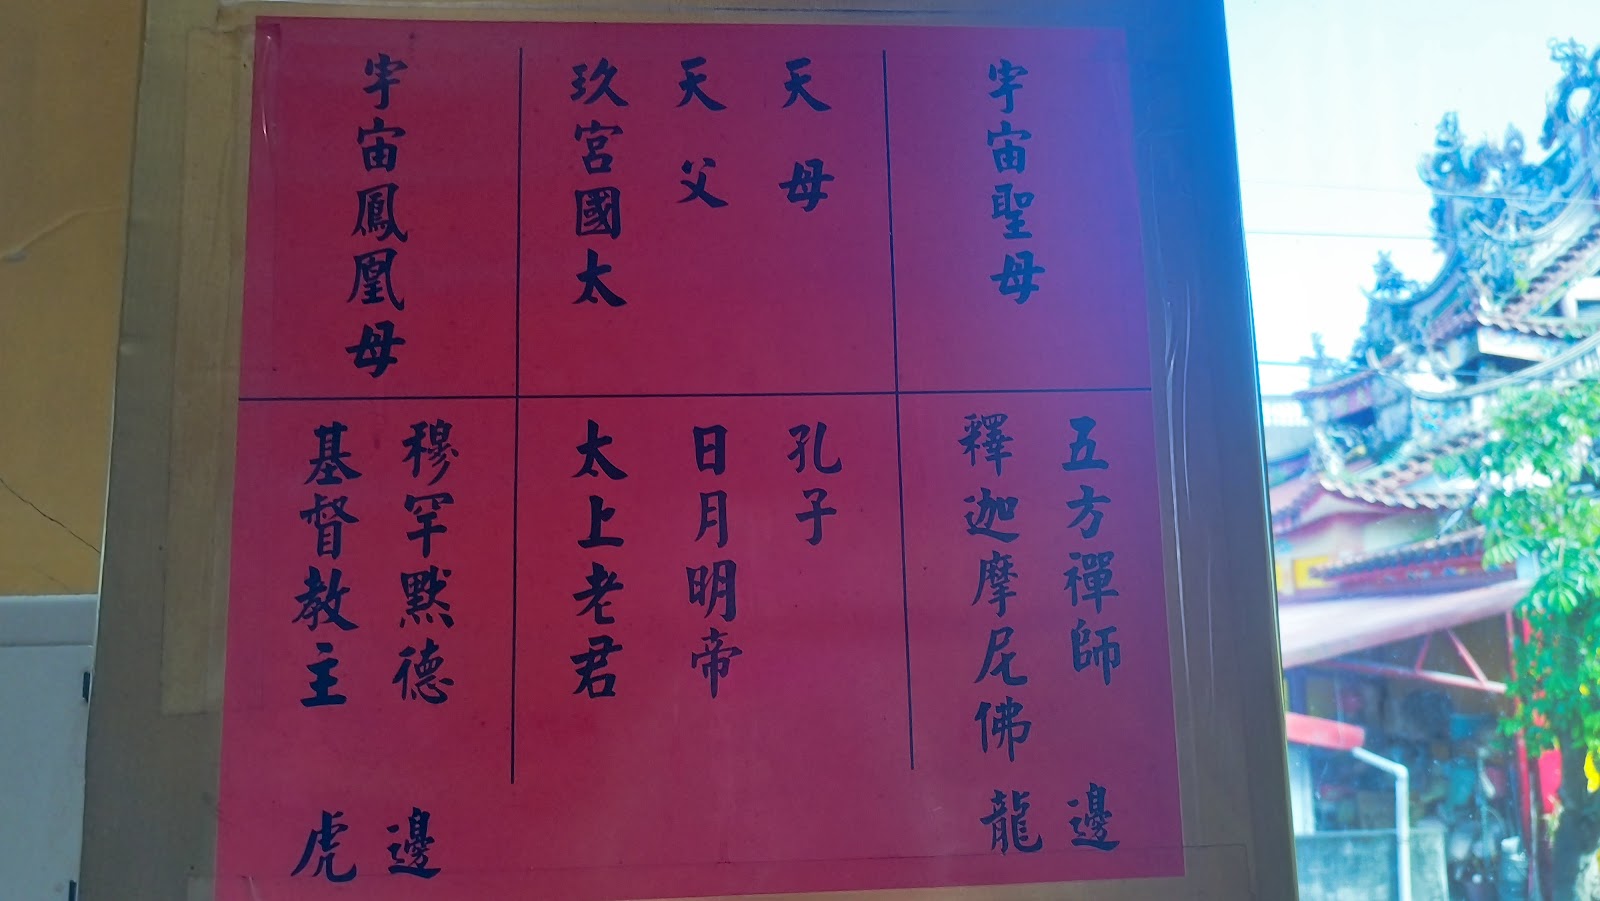 宇宙聖母
天母
天父
玖宮國太
宇宙鳳凰母
五方禪師
釋迦摩尼佛
孔子
日月明帝
太上老君
穆罕默德
基督教主
龍邊
虎邊